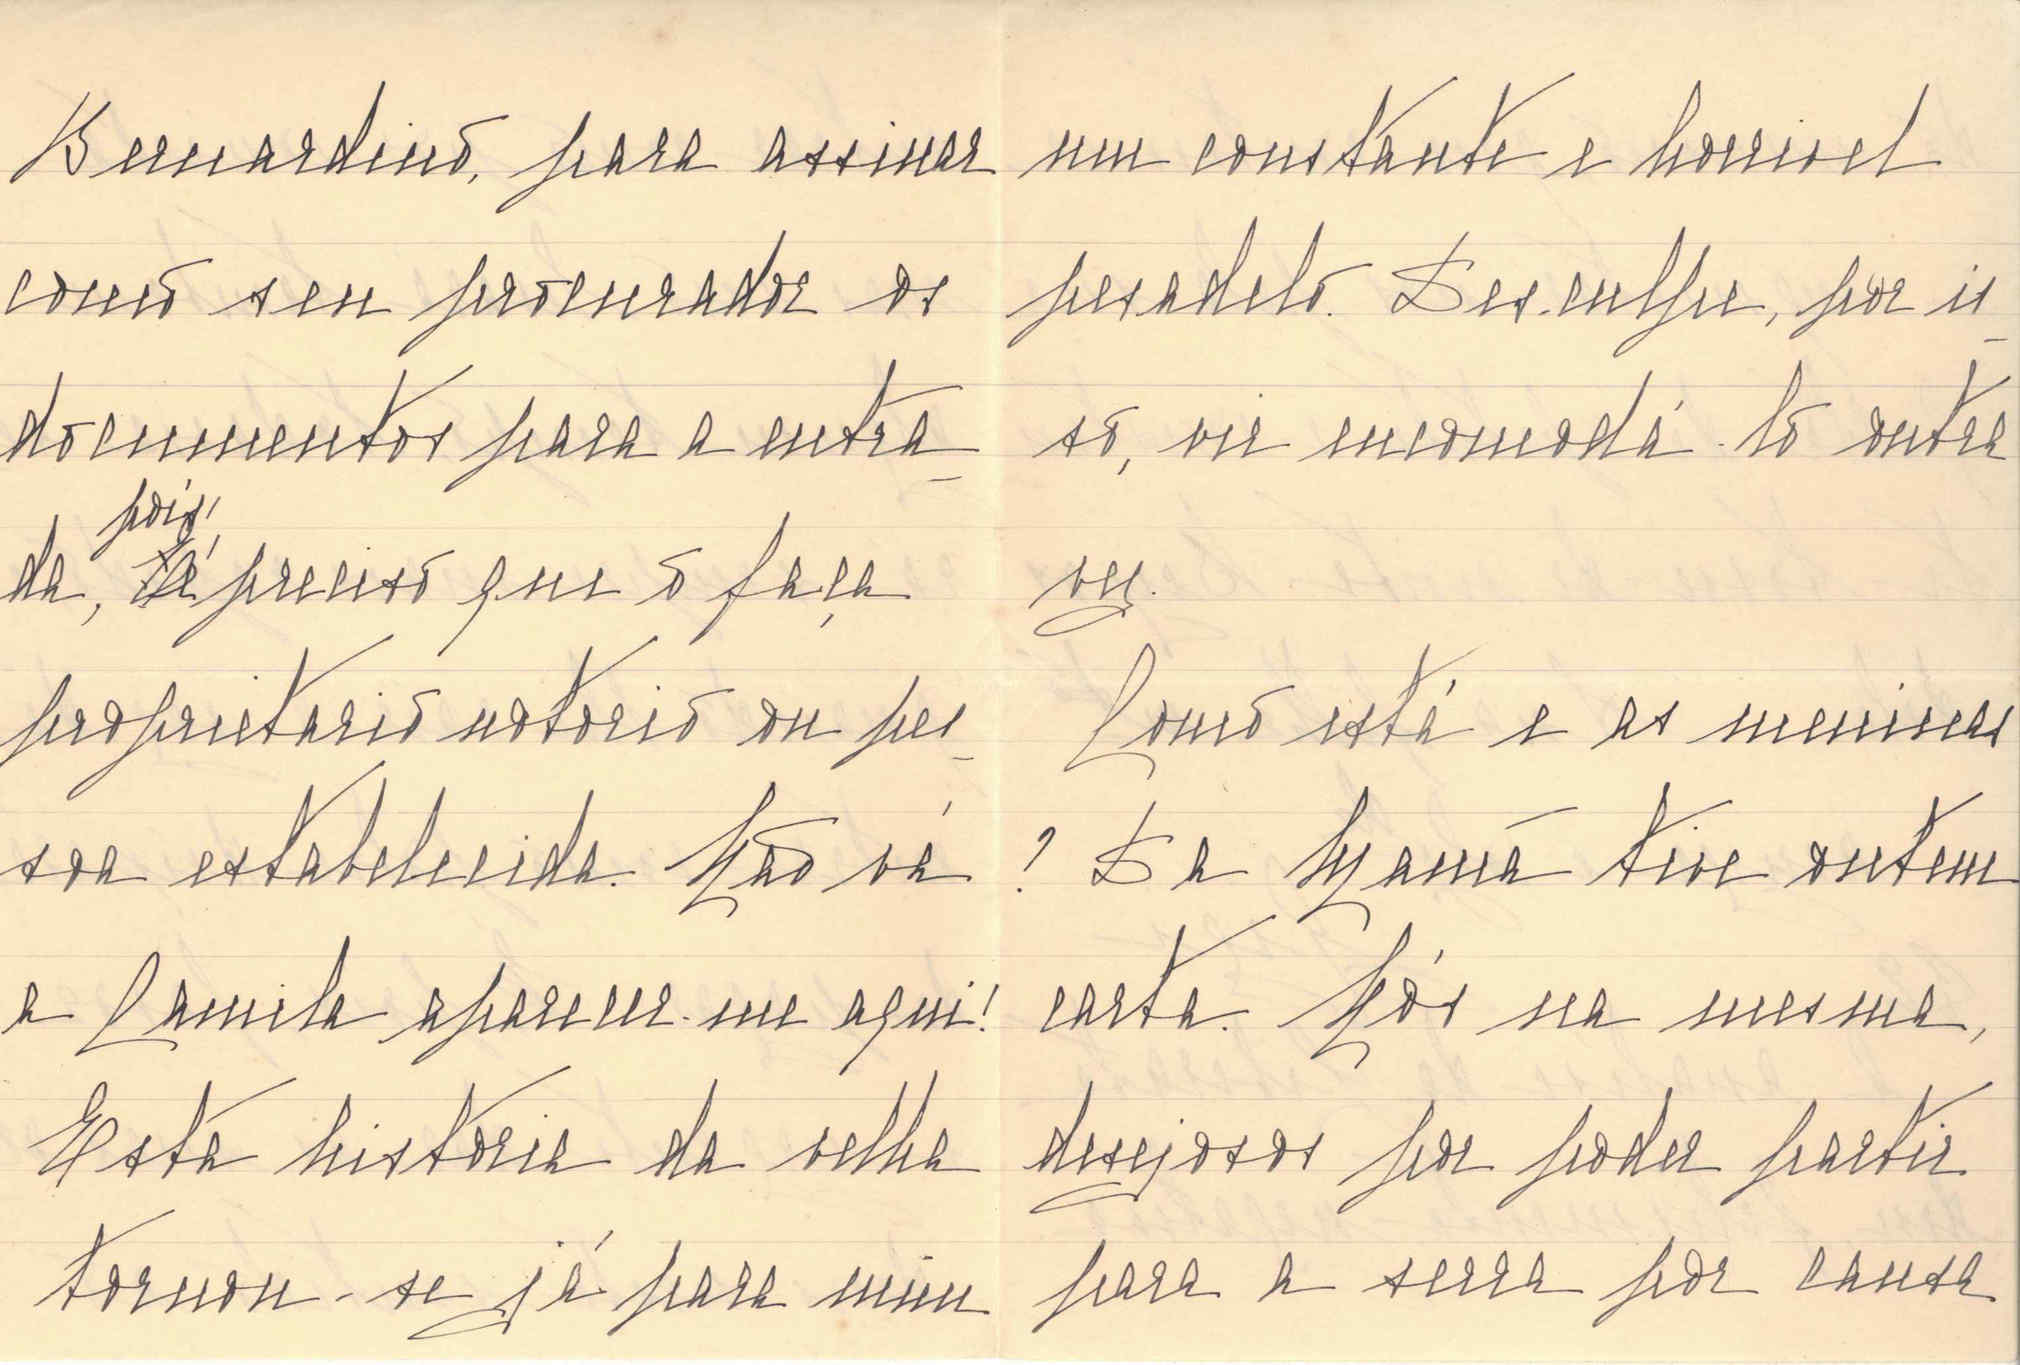 Bernardino, para assinar
como seu procurador os
documentos para a entra-
da, pois, é preciso que o faça
proprietario notorio ou pes-
soa estabelecida. Não vá
a Camila aparecer-me aqui!
Esta historia da velha
tornou-se já para mim
um constante e horrivel
pesadelo. Desculpe, por is-
so, vir incomodá-lo outra
vez.
Como está e as meninas
? Da Mamã tive ontem
carta. Nós na mesma,
desejosos por poder partir
para a serra por causa